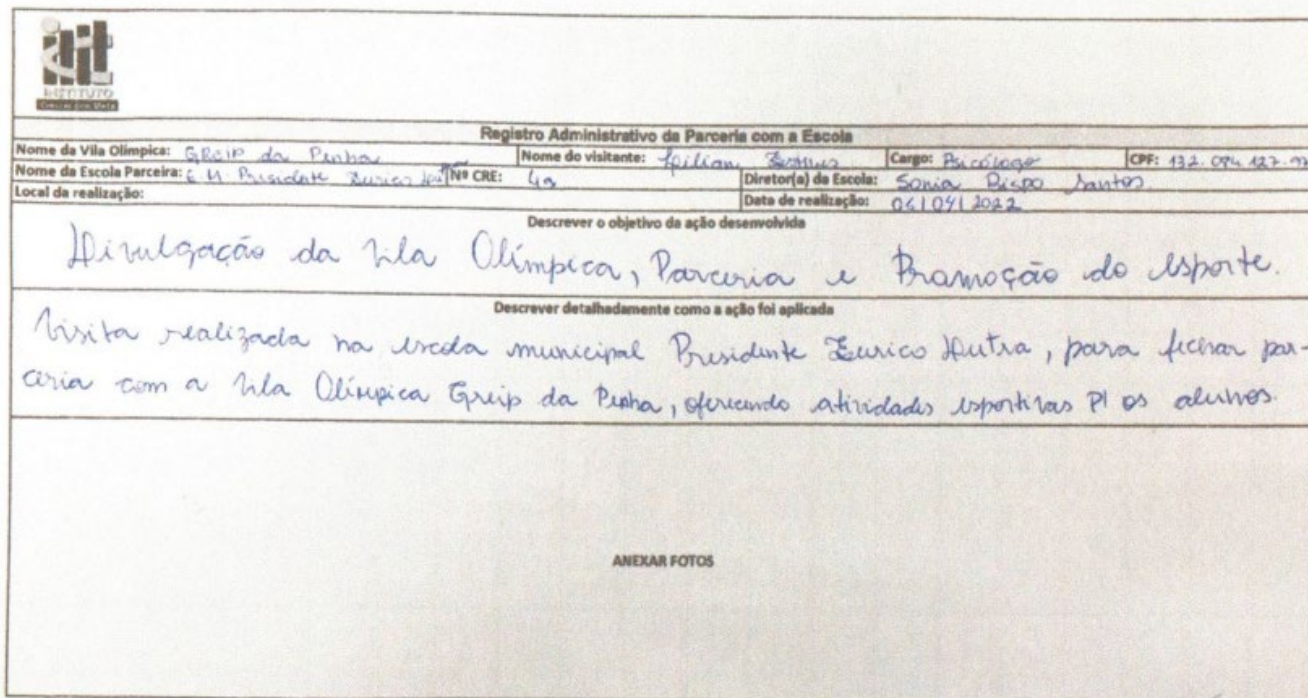 INSTITUTO
Registro Administrativo da Parceria com a Escola
Nome da Vila Olímpica: GREIP da Penha Nome do visitante: Lilian Cargo: Psicóloga CPF: 132.094.127.
Nome da Escola Parceira: E.M. Presidente Eurico Nº CRE: 4ª Diretor(a) da Escola: Sonia Bispo Santos
Local da realização: Data de realização: 06/04/2022
Descrever o objetivo da ação desenvolvida
Divulgação da Vila Olímpica, Parceria e Promoção do esporte.
Descrever detalhadamente como a ação foi aplicada
Visita realizada na escola municipal Presidente Eurico Dutra, para fechar par-
ceria com a Vila Olímpica Greip da Penha, oferecendo atividades esportivas p/ os alunos.
ANEXAR FOTOS